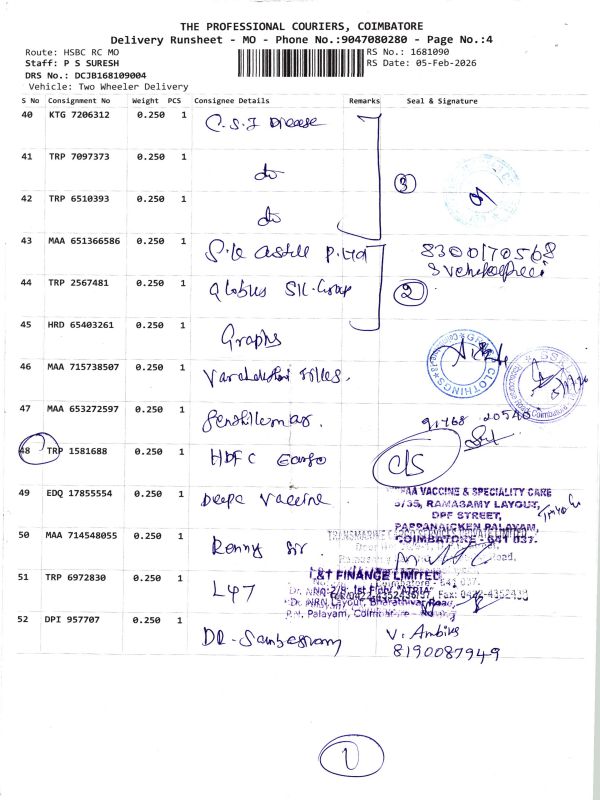 THE PROFESSIONAL COURIERS, COIMBATORE
Delivery Runsheet - MO - Phone No.:9047080280 - Page No.:4
Route: HSBC RC MO
RS No.: 1681090
Staff: P S SURESH
RS Date: 05-Feb-2026
DRS No.: DCJB168109004
Vehicle: Two Wheeler Delivery
S No Consignment No Weight PCS Consignee Details Remarks Seal & Signature
40 KTG 7206312 0.250 1 C.S.I
41 TRP 7097373 0.250 1 do
3
42 TRP 6510393 0.250 1 do
43 MAA 651366586 0.250 1 P. Ltd 8300170568
44 TRP 2567481 0.250 1 Globus 2
45 HRD 65403261 0.250 1 Graphs
CLOTHINGS
46 MAA 715738507 0.250 1 Varahalakshmi Silks.
47 MAA 653272597 0.250 1 Senthilkumar.
48 TRP 1581688 0.250 1 HDFC Cargo C/S
49 EDQ 17855554 0.250 1 Deepa Vaccine
VACCINE & SPECIALITY CARE
5/35, RAMASAMY LAYOUT,
DPF STREET,
PAPPANAICKEN PALAYAM,
COIMBATORE - 641 037.
50 MAA 714548055 0.250 1 Sir
TRANSMARINE CARGO SERVICES PRIVATE LIMITED
51 TRP 6972830 0.250 1 L47
L&T FINANCE LIMITED
1st Floor "ATRIA"
Dr. NRN Layout, Bharathiyar Road,
P.N. Palayam, Coimbatore
Fax: 0422-4352433
52 DPI 957707 0.250 1 DR. V. Ambika
8190087949
1